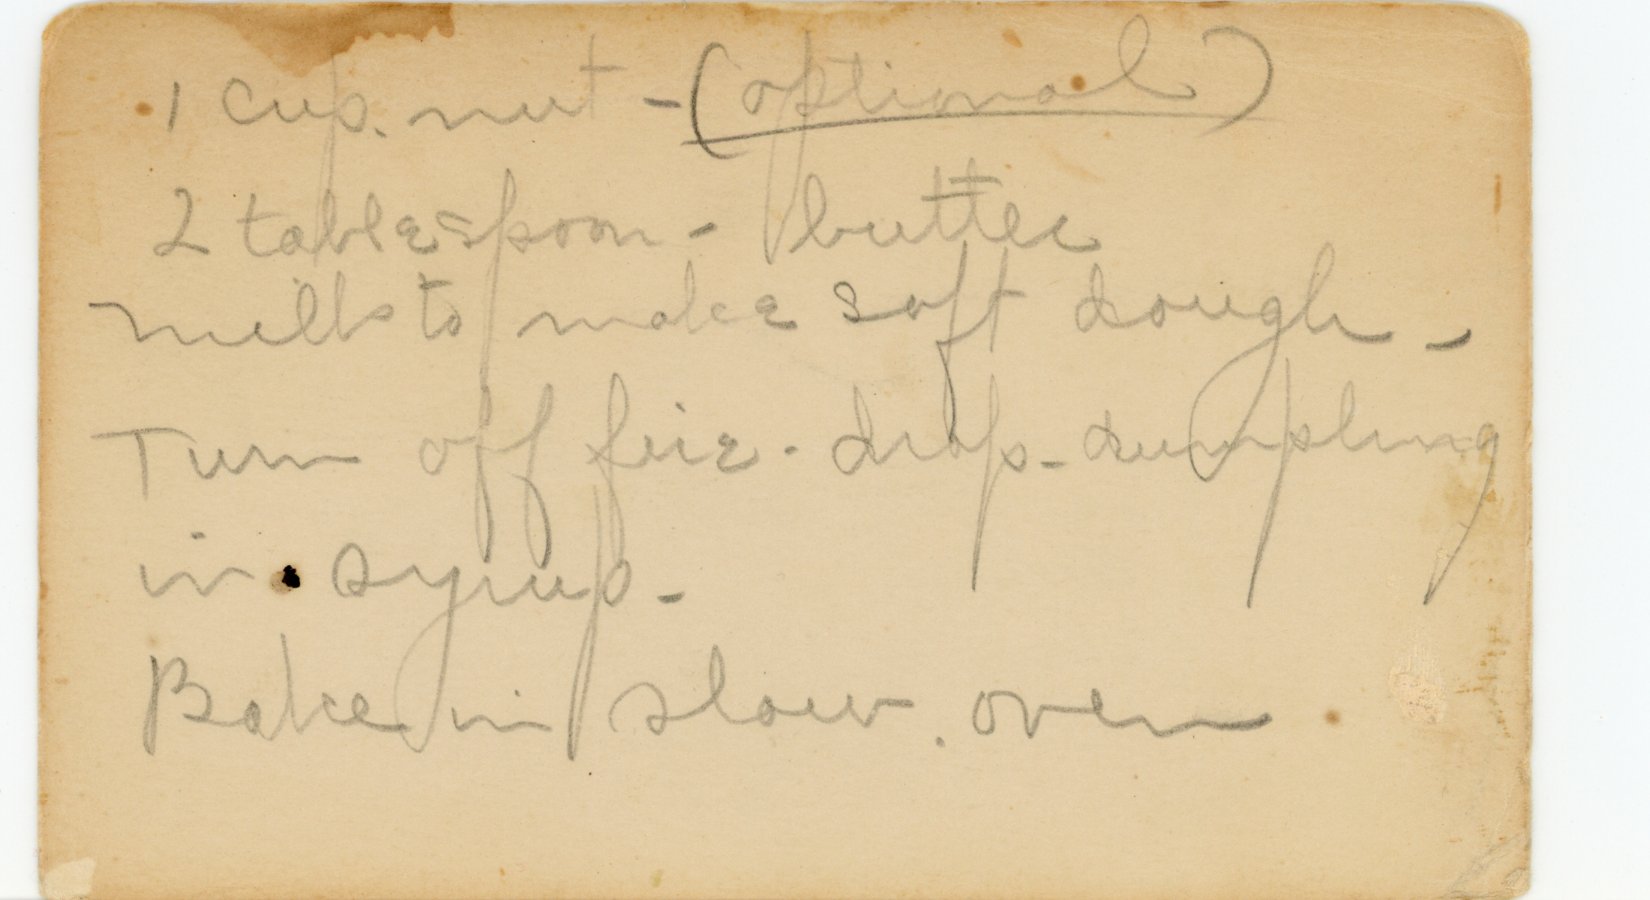 1 cup. nut - (optional)
2 tablespoon - butter
milk to make soft dough -
Turn off fire. drop - dumpling
in syrup -
Bake in slow. oven